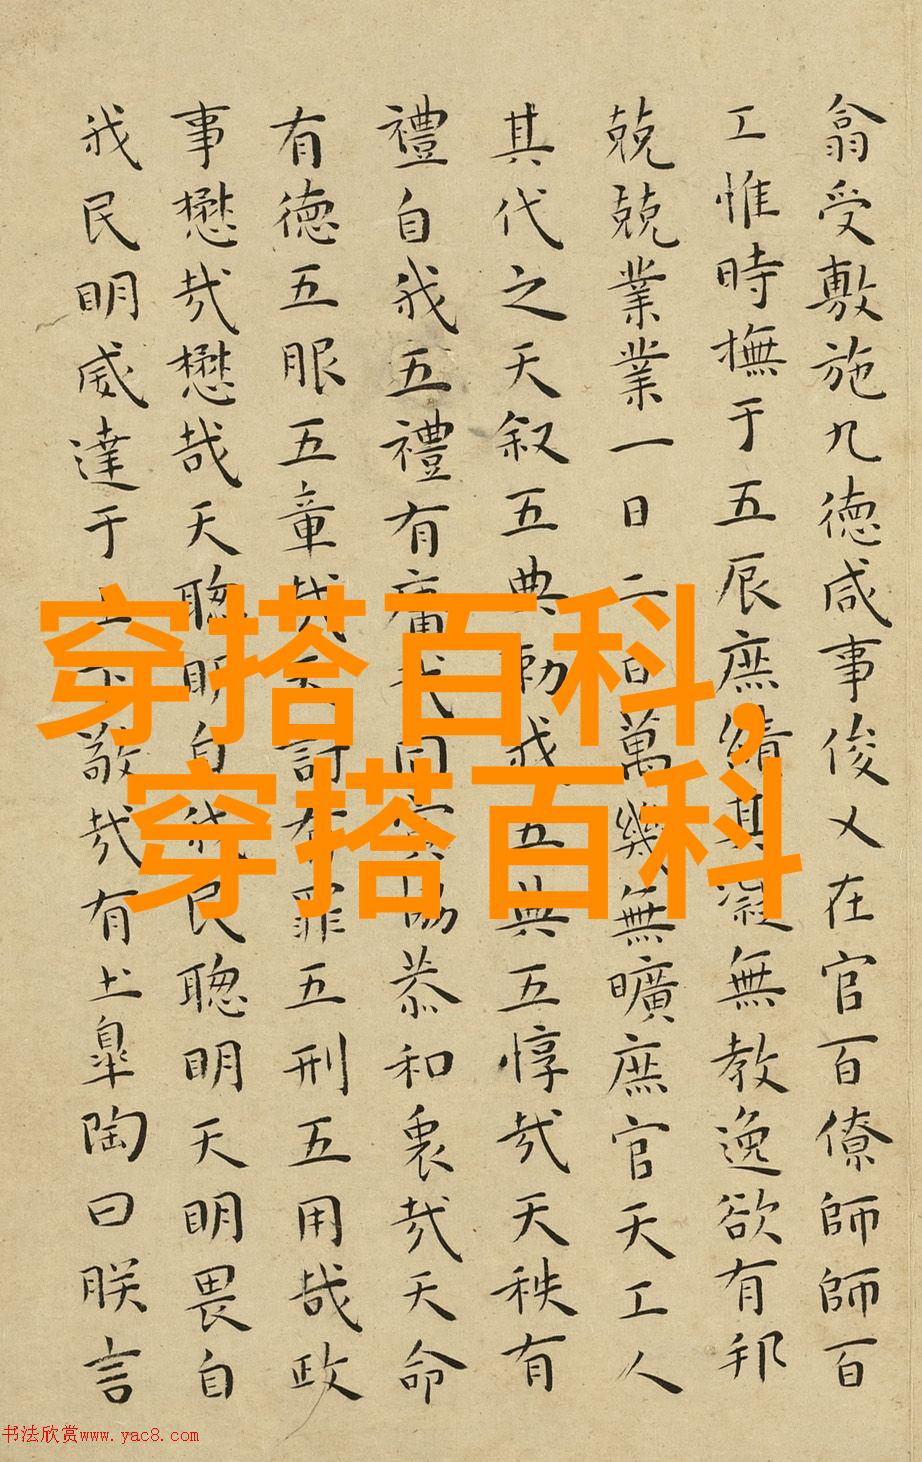 翕受敷施九德咸事俊乂在官百僚師師百
工惟時撫于五辰庶績其凝無教逸欲有邦
兢兢業業一日二日萬幾無曠庶官天工人
其代之天叙五典勑我五典五惇哉天秩有
禮自我五禮有庸哉同寅協恭和衷哉天命
有德五服五章哉天討有罪五刑五用哉政
事懋哉懋哉天聰明自我民聰明天明畏自
我民明威達于上下敬哉有土皐陶曰朕言
穿搭百科,
穿搭百科
书法欣赏www.yac8.com